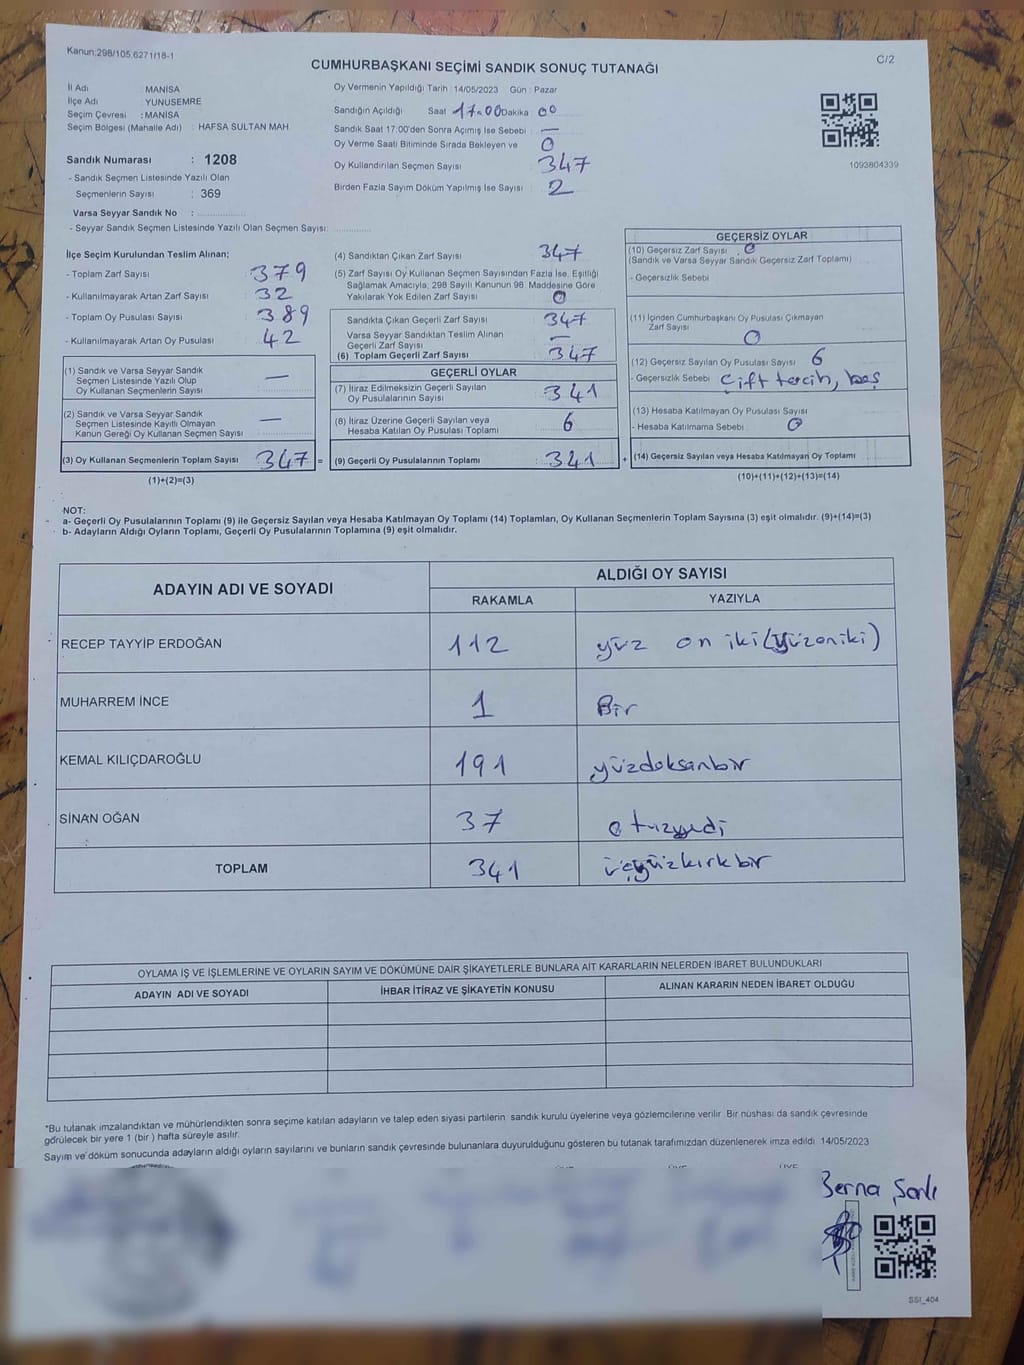 Kanun:298/105,6271/18-1
C/2
CUMHURBAŞKANI SEÇİMİ SANDIK SONUÇ TUTANAĞI
İl Adı : MANİSA
İlçe Adı : YUNUSEMRE
Seçim Çevresi : MANİSA
Seçim Bölgesi (Mahalle Adı) : HAFSA SULTAN MAH
Sandık Numarası : 1208
- Sandık Seçmen Listesinde Yazılı Olan
Seçmenlerin Sayısı : 369
Varsa Seyyar Sandık No :
- Seyyar Sandık Seçmen Listesinde Yazılı Olan Seçmen Sayısı:
Oy Vermenin Yapıldığı Tarih : 14/05/2023 Gün : Pazar
Sandığın Açıldığı Saat 17.00 Dakika 00
Sandık Saat 17:00'den Sonra Açımış İse Sebebi : —
Oy Verme Saati Bitiminde Sırada Bekleyen ve 0
Oy Kullandırılan Seçmen Sayısı 347
Birden Fazla Sayım Döküm Yapılmış İse Sayısı : 2
1093804339
İlçe Seçim Kurulundan Teslim Alınan;
- Toplam Zarf Sayısı : 379
- Kullanılmayarak Artan Zarf Sayısı : 32
- Toplam Oy Pusulası Sayısı : 389
- Kullanılmayarak Artan Oy Pusulası : 42
(1) Sandık ve Varsa Seyyar Sandık
Seçmen Listesinde Yazılı Olup
Oy Kullanan Seçmenlerin Sayısı : —
(2) Sandık ve Varsa Seyyar Sandık
Seçmen Listesinde Kayıtlı Olmayan
Kanun Gereği Oy Kullanan Seçmen Sayısı : —
(3) Oy Kullanan Seçmenlerin Toplam Sayısı : 347 =
(1)+(2)=(3)
(4) Sandıktan Çıkan Zarf Sayısı : 347
(5) Zarf Sayısı Oy Kullanan Seçmen Sayısından Fazla İse, Eşitliği
Sağlamak Amacıyla, 298 Sayılı Kanunun 98. Maddesine Göre
Yakılarak Yok Edilen Zarf Sayısı : 0
Sandıkta Çıkan Geçerli Zarf Sayısı : 347
Varsa Seyyar Sandıktan Teslim Alınan
Geçerli Zarf Sayısı : —
(6) Toplam Geçerli Zarf Sayısı : 347
GEÇERLİ OYLAR
(7) İtiraz Edilmeksizin Geçerli Sayılan
Oy Pusulalarının Sayısı : 341
(8) İtiraz Üzerine Geçerli Sayılan veya
Hesaba Katılan Oy Pusulası Toplamı : 6
(9) Geçerli Oy Pusulalarının Toplamı : 341 +
GEÇERSİZ OYLAR
(10) Geçersiz Zarf Sayısı : 0
(Sandık ve Varsa Seyyar Sandık Geçersiz Zarf Toplamı)
- Geçersizlik Sebebi :
(11) İçinden Cumhurbaşkanı Oy Pusulası Çıkmayan
Zarf Sayısı : 0
(12) Geçersiz Sayılan Oy Pusulası Sayısı : 6
- Geçersizlik Sebebi : Çift tercih, boş
(13) Hesaba Katılmayan Oy Pusulası Sayısı :
- Hesaba Katılmama Sebebi : 0
(14) Geçersiz Sayılan veya Hesaba Katılmayan Oy Toplamı :
(10)+(11)+(12)+(13)=(14)
NOT:
a- Geçerli Oy Pusulalarının Toplamı (9) ile Geçersiz Sayılan veya Hesaba Katılmayan Oy Toplamı (14) Toplamları, Oy Kullanan Seçmenlerin Toplam Sayısına (3) eşit olmalıdır. (9)+(14)=(3)
b- Adayların Aldığı Oyların Toplamı, Geçerli Oy Pusulalarının Toplamına (9) eşit olmalıdır.
ADAYIN ADI VE SOYADI
ALDIĞI OY SAYISI
RAKAMLA YAZIYLA
RECEP TAYYİP ERDOĞAN 112 yüz on iki (yüzoniki)
MUHARREM İNCE 1 Bir
KEMAL KILIÇDAROĞLU 191 yüzdoksanbir
SİNAN OĞAN 37 otuzyedi
TOPLAM 341 üçyüzkırkbir
OYLAMA İŞ VE İŞLEMLERİNE VE OYLARIN SAYIM VE DÖKÜMÜNE DAİR ŞİKAYETLERLE BUNLARA AİT KARARLARIN NELERDEN İBARET BULUNDUKLARI
ADAYIN ADI VE SOYADI İHBAR İTİRAZ VE ŞİKAYETİN KONUSU ALINAN KARARIN NEDEN İBARET OLDUĞU
*Bu tutanak imzalandıktan ve mühürlendikten sonra seçime katılan adayların ve talep eden siyasi partilerin sandık kurulu üyelerine veya gözlemcilerine verilir. Bir nüshası da sandık çevresinde
görülecek bir yere 1 (bir ) hafta süreyle asılır.
Sayım ve döküm sonucunda adayların aldığı oyların sayılarını ve bunların sandık çevresinde bulunanlara duyurulduğunu gösteren bu tutanak tarafımızdan düzenlenerek imza edildi. 14/05/2023
Berna Şanlı
SSI_404